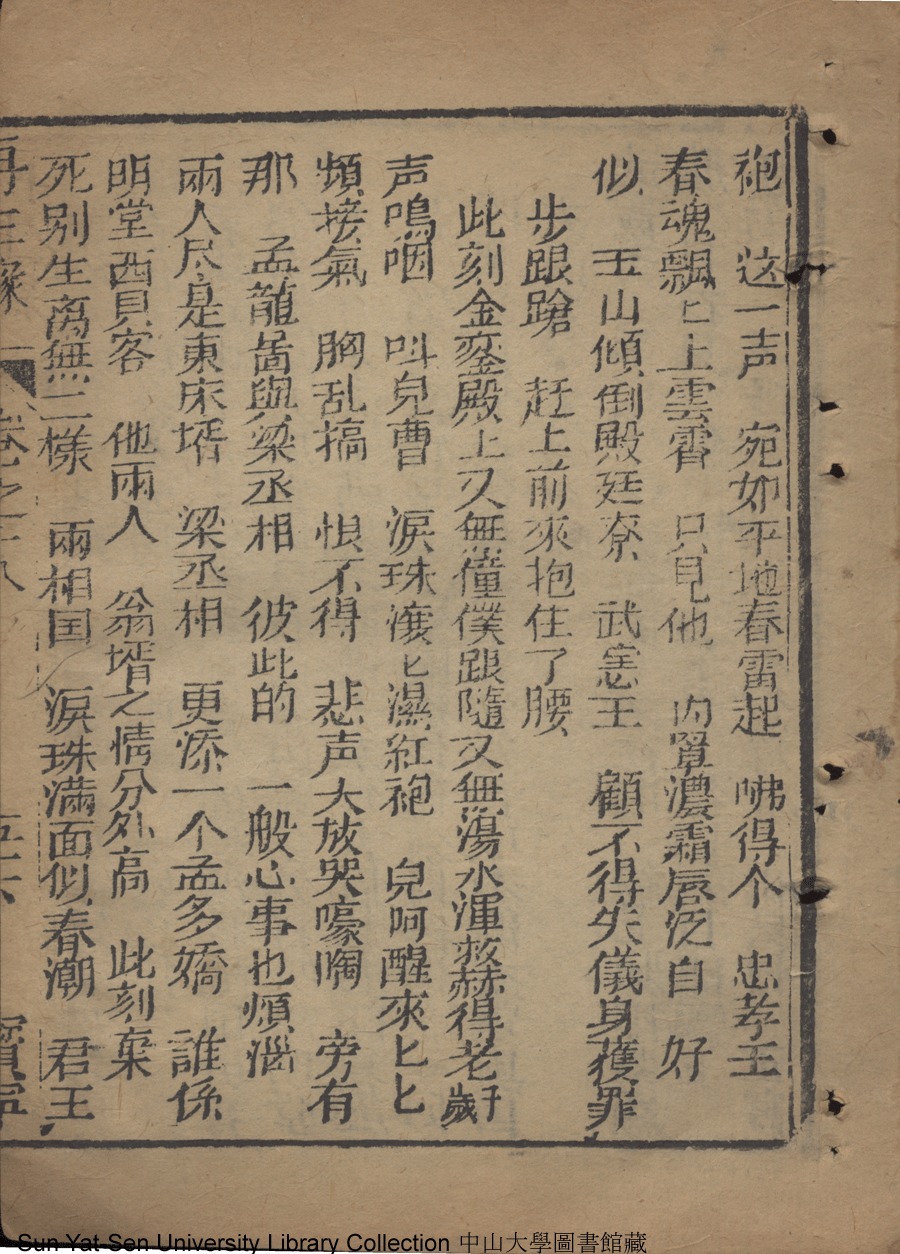 袍　这一声　宛如平地春雷起　咈得个　忠孝王
春魂飄匕上雲霄　只見他　肉罩濃霜唇泛白　好
似　玉山傾倒殿廷寮　武憲王　顧不得失儀身獲罪
步踉蹌　赶上前來抱住了腰
此刻金銮殿上又無僮僕跟隨又無湯水渾救赫得老
声鳴咽　呌兒曹　淚珠滾匕濕紅袍　兒呵醒來匕匕
頻接氣　胸乱搞　恨不得　悲声大放哭嚎啕　旁有
那　孟龍啚與梁丞相　彼此的　一般心事也煩惱
兩人尽是東床壻　梁丞相　更添一个孟多嬌　誰係
明堂西貝客　他兩人　翁壻之情分外高　此刻棄
死别生离無二樣　兩相囯　淚珠滿面似春潮　君王
再生緣　卷之十八　五六　寳寧
Sun Yat-Sen University Library Collection 中山大學圖書館藏